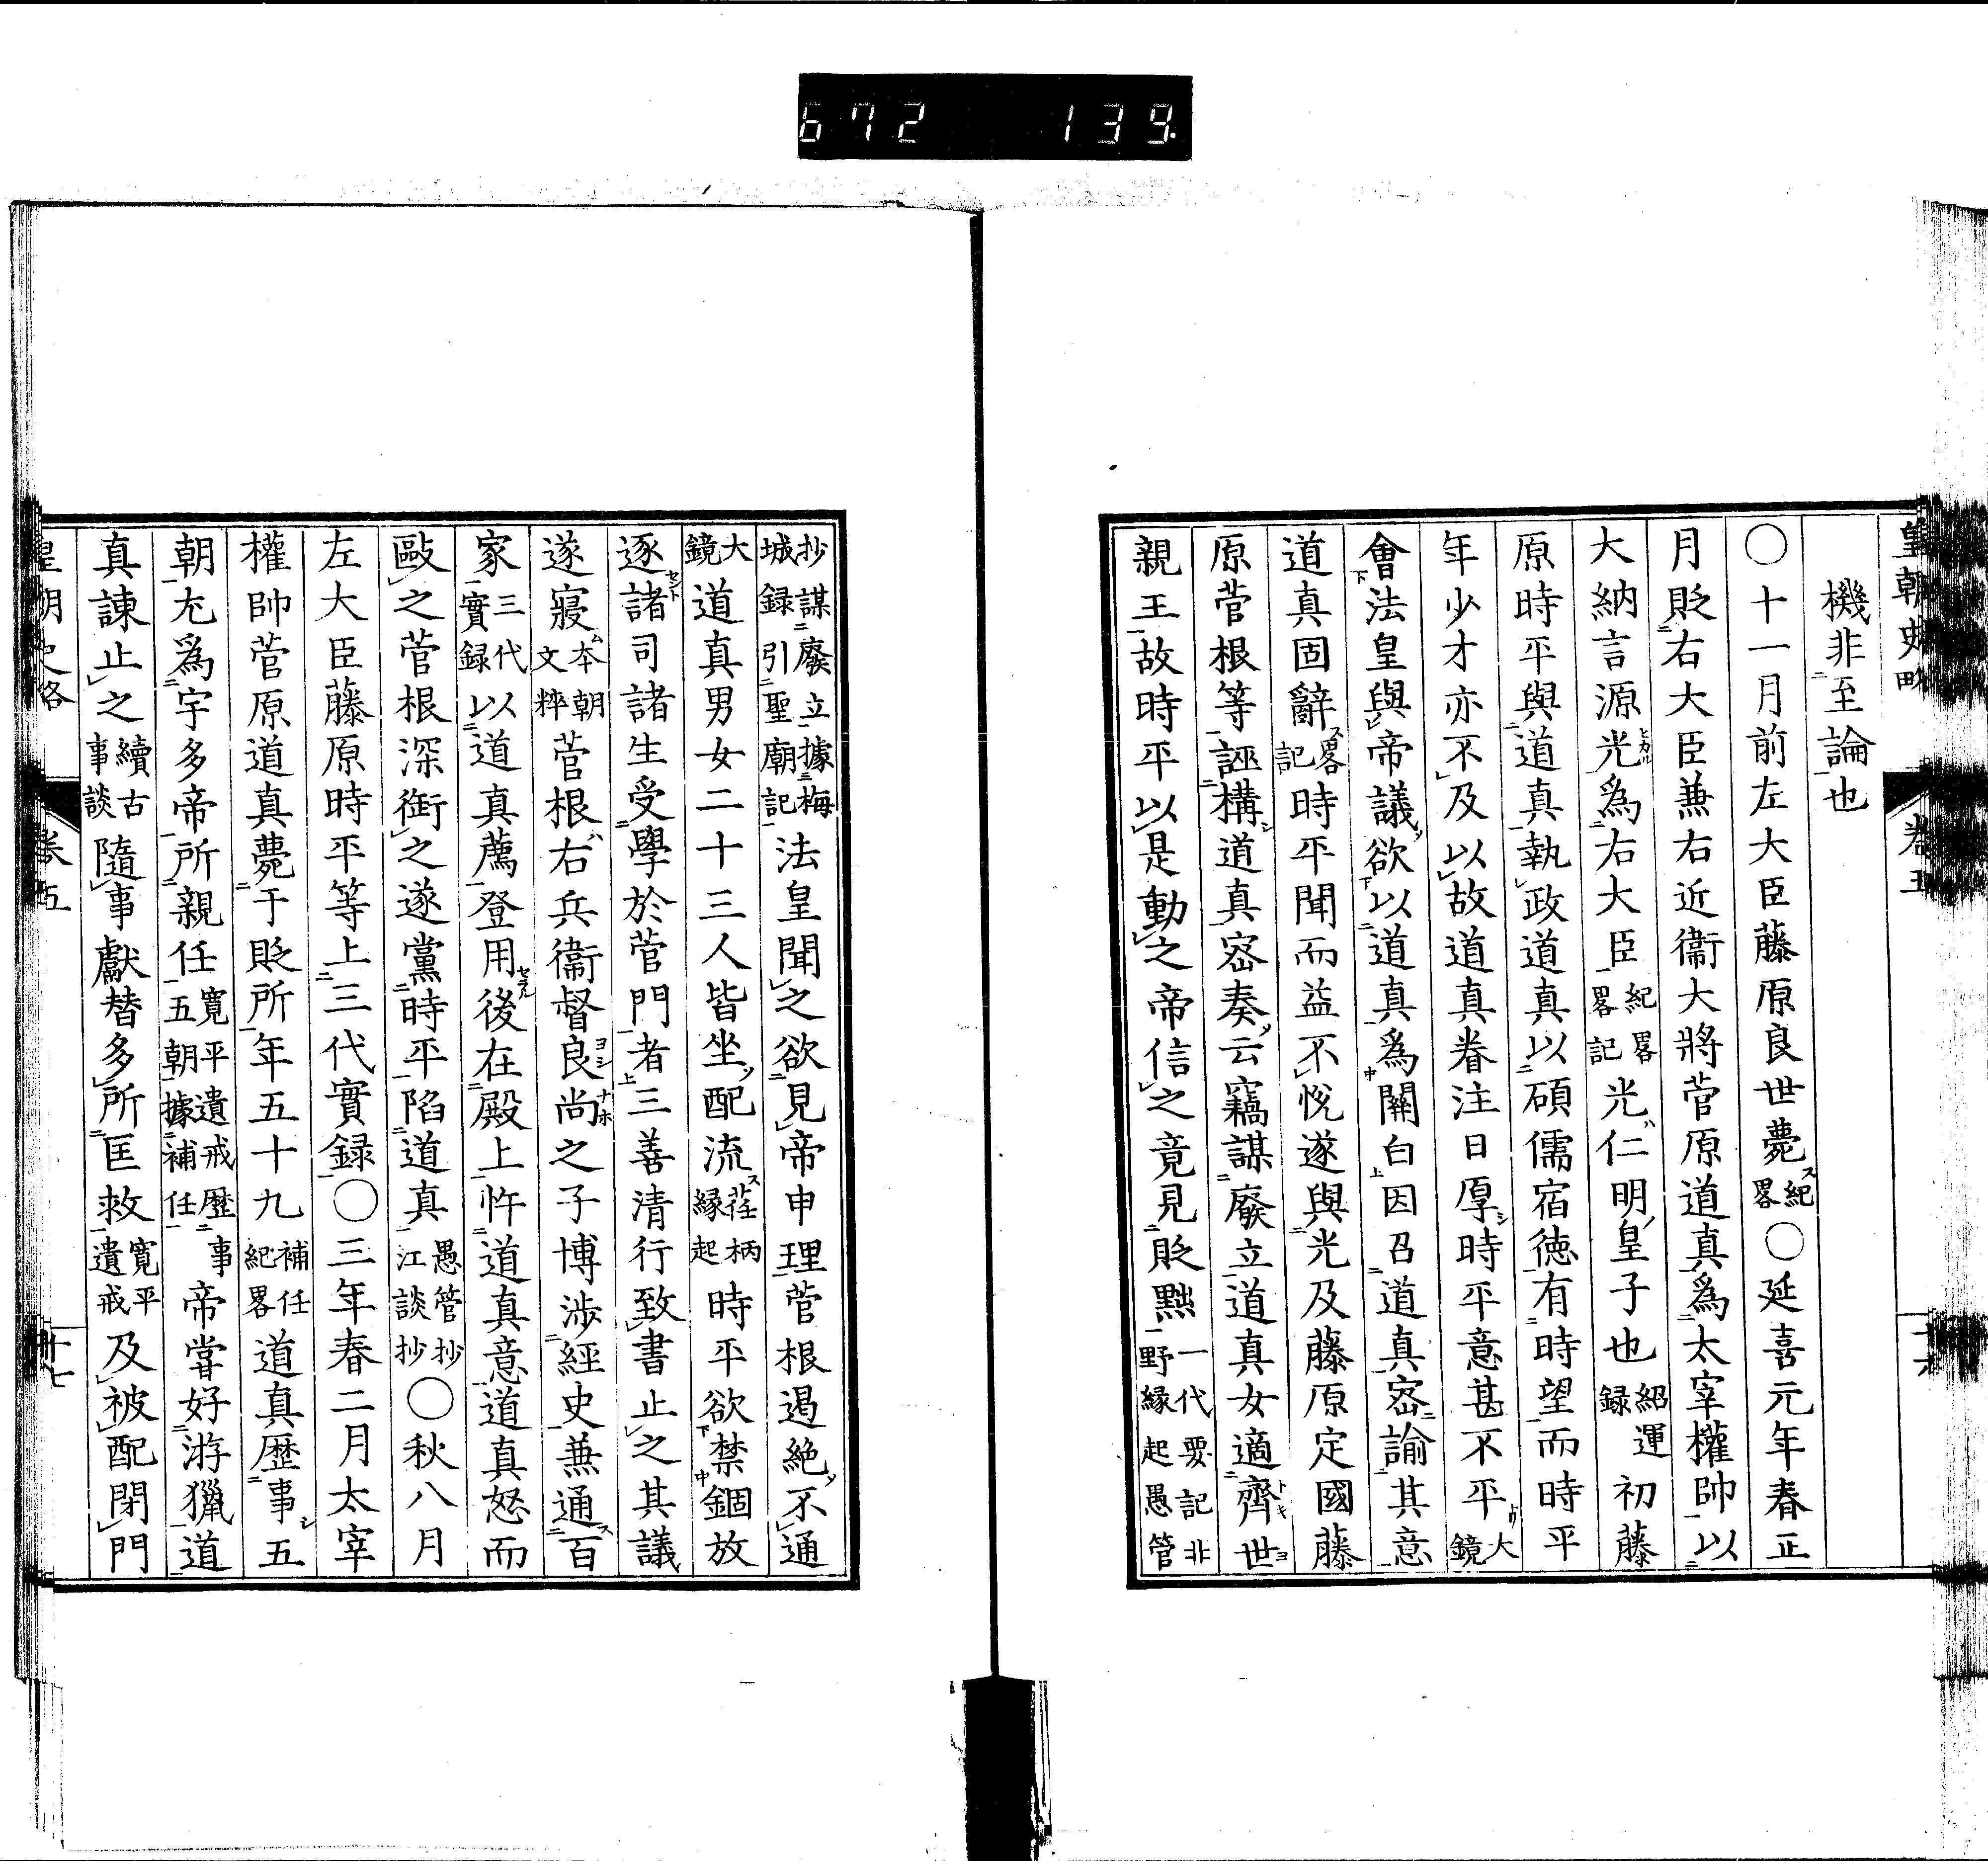 672 139.
皇朝史略 卷五
機非至論也
〇十一月前左大臣藤原良世薨紀略〇延喜元年春正
月貶右大臣兼右近衞大將菅原道真爲太宰權帥以
大納言源光爲右大臣紀畧畧記光仁明皇子也紹運錄初藤
原時平與道真執政道真以碩儒宿徳有時望而時平
年少才亦不及以故道真眷注日厚時平意甚不平大鏡
會法皇與帝議欲以道真爲關白因召道真密諭其意
道真固辭畧記時平聞而益不悅遂與光及藤原定國藤
原菅根等誣構道真密奏云竊謀廢立道真女適齊世
親王故時平以是動之帝信之竟見貶黜一代要記非野緣起愚管
抄謀廢立據梅城録引聖廟記法皇聞之欲見帝申理菅根遏絶不通
大鏡道真男女二十三人皆坐配流荏柄緣起時平欲禁錮放
逐諸司諸生受學於菅門者三善清行致書止之其議
遂寢本朝文粹菅根右兵衞督良尚之子博涉經史兼通百
家三代實録以道真薦登用後在殿上忤道真意道真怒而
毆之菅根深銜之遂黨時平陷道真愚管抄江談抄〇秋八月
左大臣藤原時平等上三代實録〇三年春二月太宰
權帥菅原道真薨于貶所年五十九補任紀畧道真歷事五
朝尤爲宇多帝所親任寬平遺戒歷事五朝據補任帝嘗好游獵道
真諫止之續古事談隨事獻替多所匡救寬平遺戒及被配閉門
卷五 十七